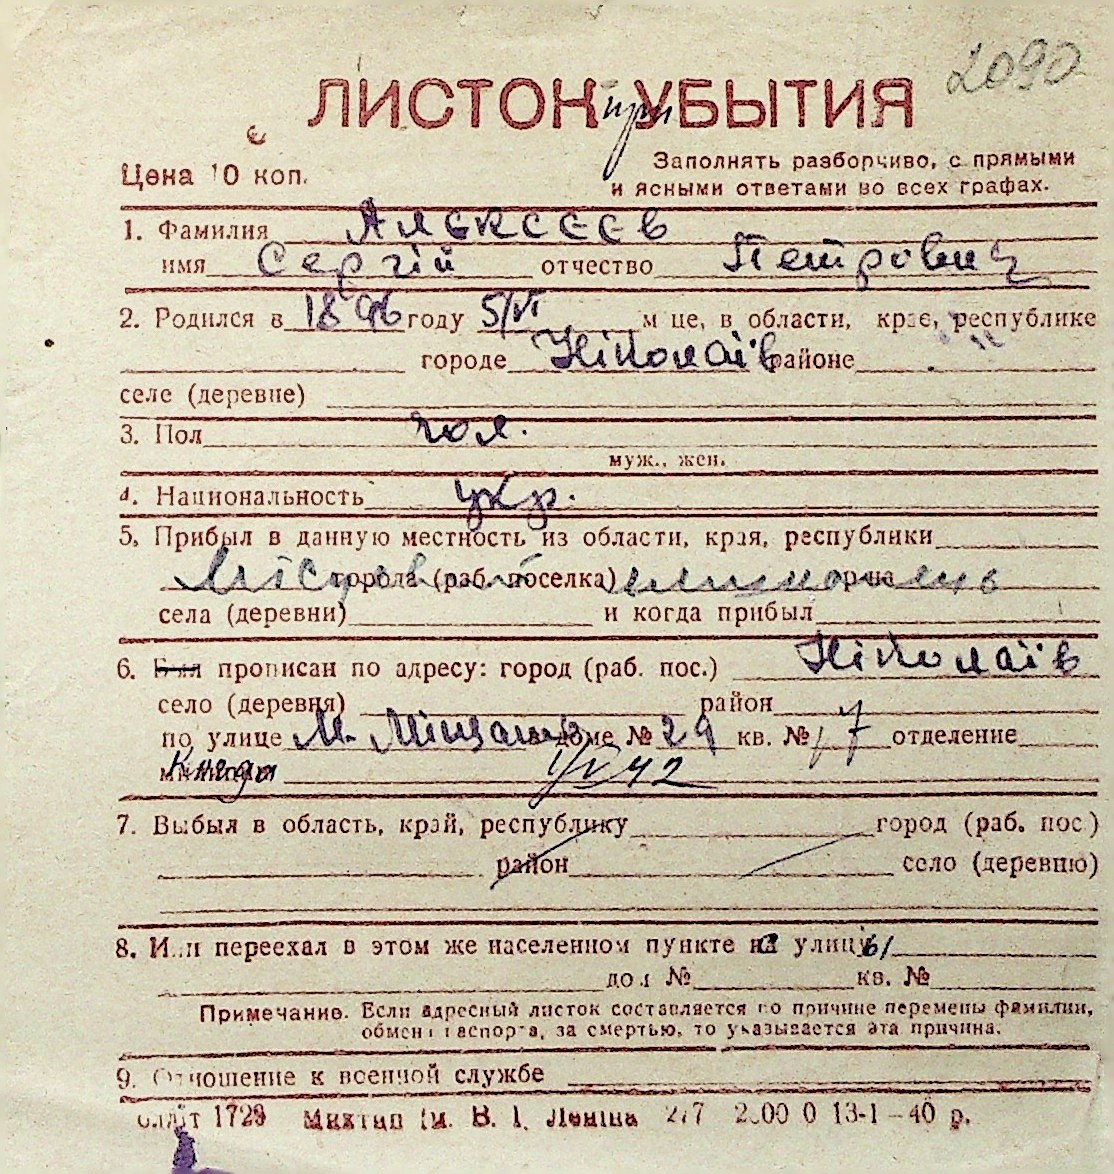 2090
ЛИСТОК при УБЫТИЯ
Цена 10 коп.
Заполнять разборчиво, с прямыми
и ясными ответами во всех графах.
1. Фамилия Алексеев
имя Сергій отчество Петрович
2. Родился в 1896 году 5/VI м це, в области, крае, республике
городе Ніколаїв районе
селе (деревне)
3. Пол чол.
муж., жен.
4. Национальность укр.
5. Прибыл в данную местность из области, края, республики
Місцевий города (раб. поселка) р-на
села (деревни) и когда прибыл
6. Был прописан по адресу: город (раб. пос.) Ніколаїв
село (деревня) район
по улице М. Міщанск в доме № 29 кв. № 17 отделение
милиции Когда 1/IV 42
7. Выбыл в область, край, республику город (раб. пос)
район село (деревню)
8. Или переехал в этом же населенном пункте с улицы
дом № кв. №
Примечание. Если адресный листок составляется по причине перемены фамилии,
обмена паспорта, за смертью, то указывается эта причина.
9. Отношение к военной службе
1729 Миктип ім. В. І. Леніна 13-1-40 р.